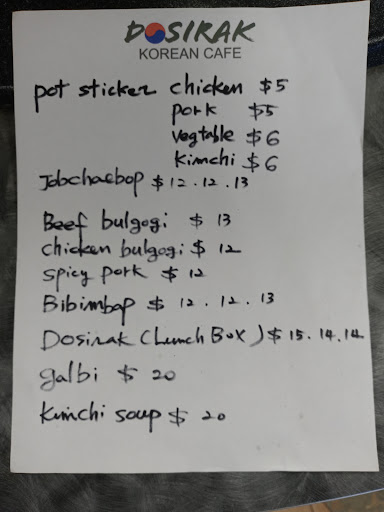 DOSIRAK
KOREAN CAFE
pot sticker chicken $5
pork $5
vegtable $6
kimchi $6
Jobchaebop $12.12.13
Beef bulgogi $13
chicken bulgogi $12
spicy pork $12
Bibimbap $12.12.13
Dosirak (Lunch Box) $15.14.14
galbi $20
Kimchi soup $20